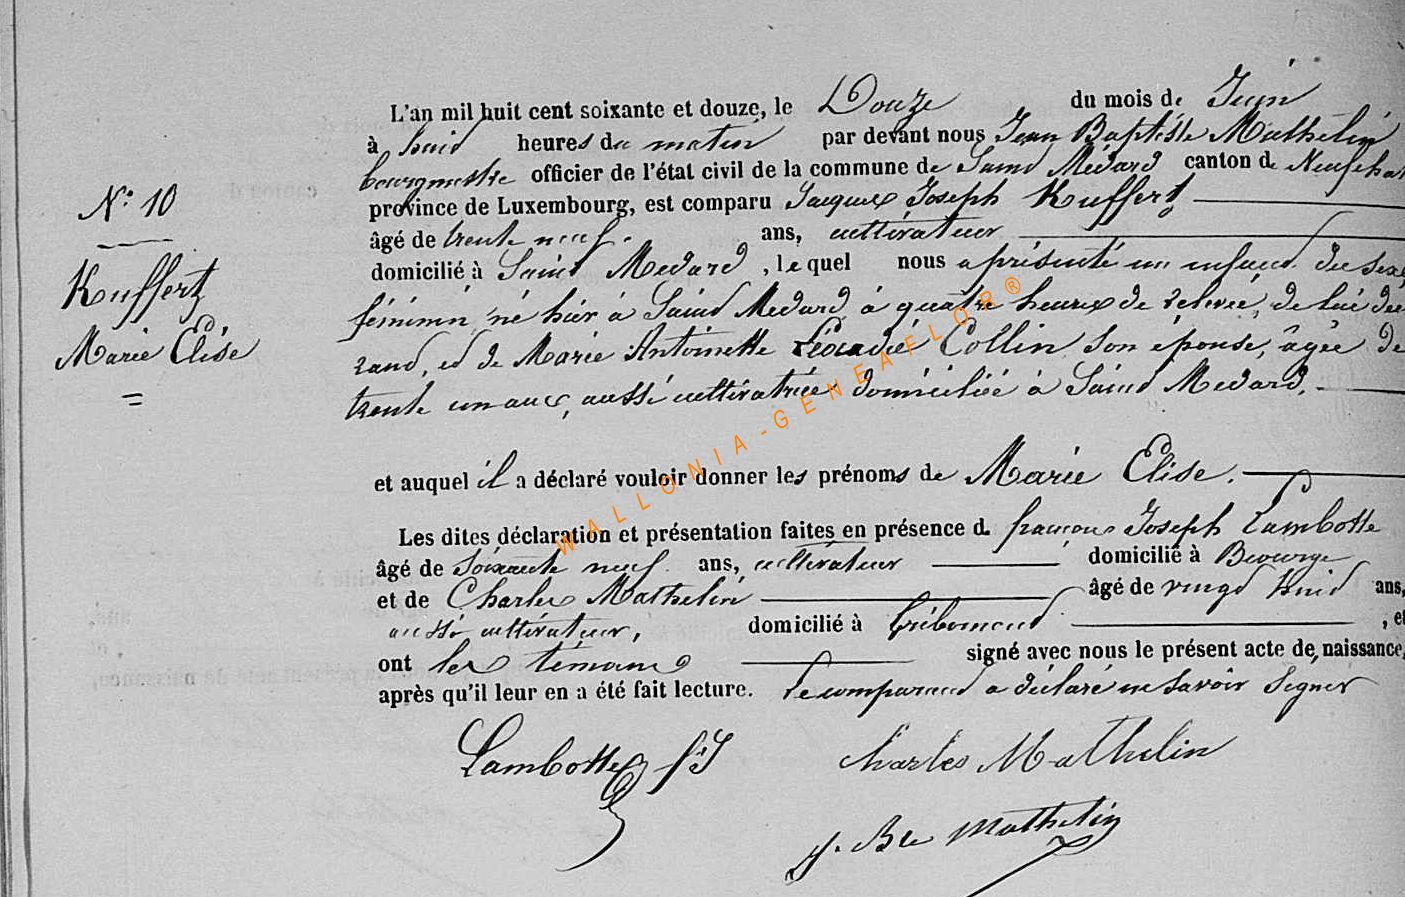 L'an mil huit cent soixante et douze, le Douze du mois de Juin
à huit heures du matin par devant nous Jean Baptiste Mathelin
bourgmestre officier de l'état civil de la commune de Saint Médard canton de Neufchat
province de Luxembourg, est comparu Jacques Joseph Kuffertz
âgé de trente neuf ans, cultivateur
domicilié à Saint Medard, lequel nous a présenté un enfant du sexe
féminin né hier à Saint Medard à quatre heures de relevée, de lui décla
rant, et de Marie Antoinette Léocadie Collin son épouse, âgée de
trente un ans, aussi cultivatrice domiciliée à Saint Medard.
N° 10
Kuffertz
Marie Elise
=
et auquel il a déclaré vouloir donner les prénoms de Marie Elise.
Les dites déclaration et présentation faites en présence d. françois Joseph Lambotte
âgé de soixante neuf ans, cultivateur domicilié à
et de Charles Mathelin âgé de vingt huit ans,
aussi cultivateur, domicilié à Gribomont, et
ont les témoins signé avec nous le présent acte de naissance,
après qu'il leur en a été fait lecture. Le comparant a déclaré ne savoir signer
Lambotte f.J
Charles Mathelin
J. Bte Mathelin
WALLONIA-GENEAFLOR®